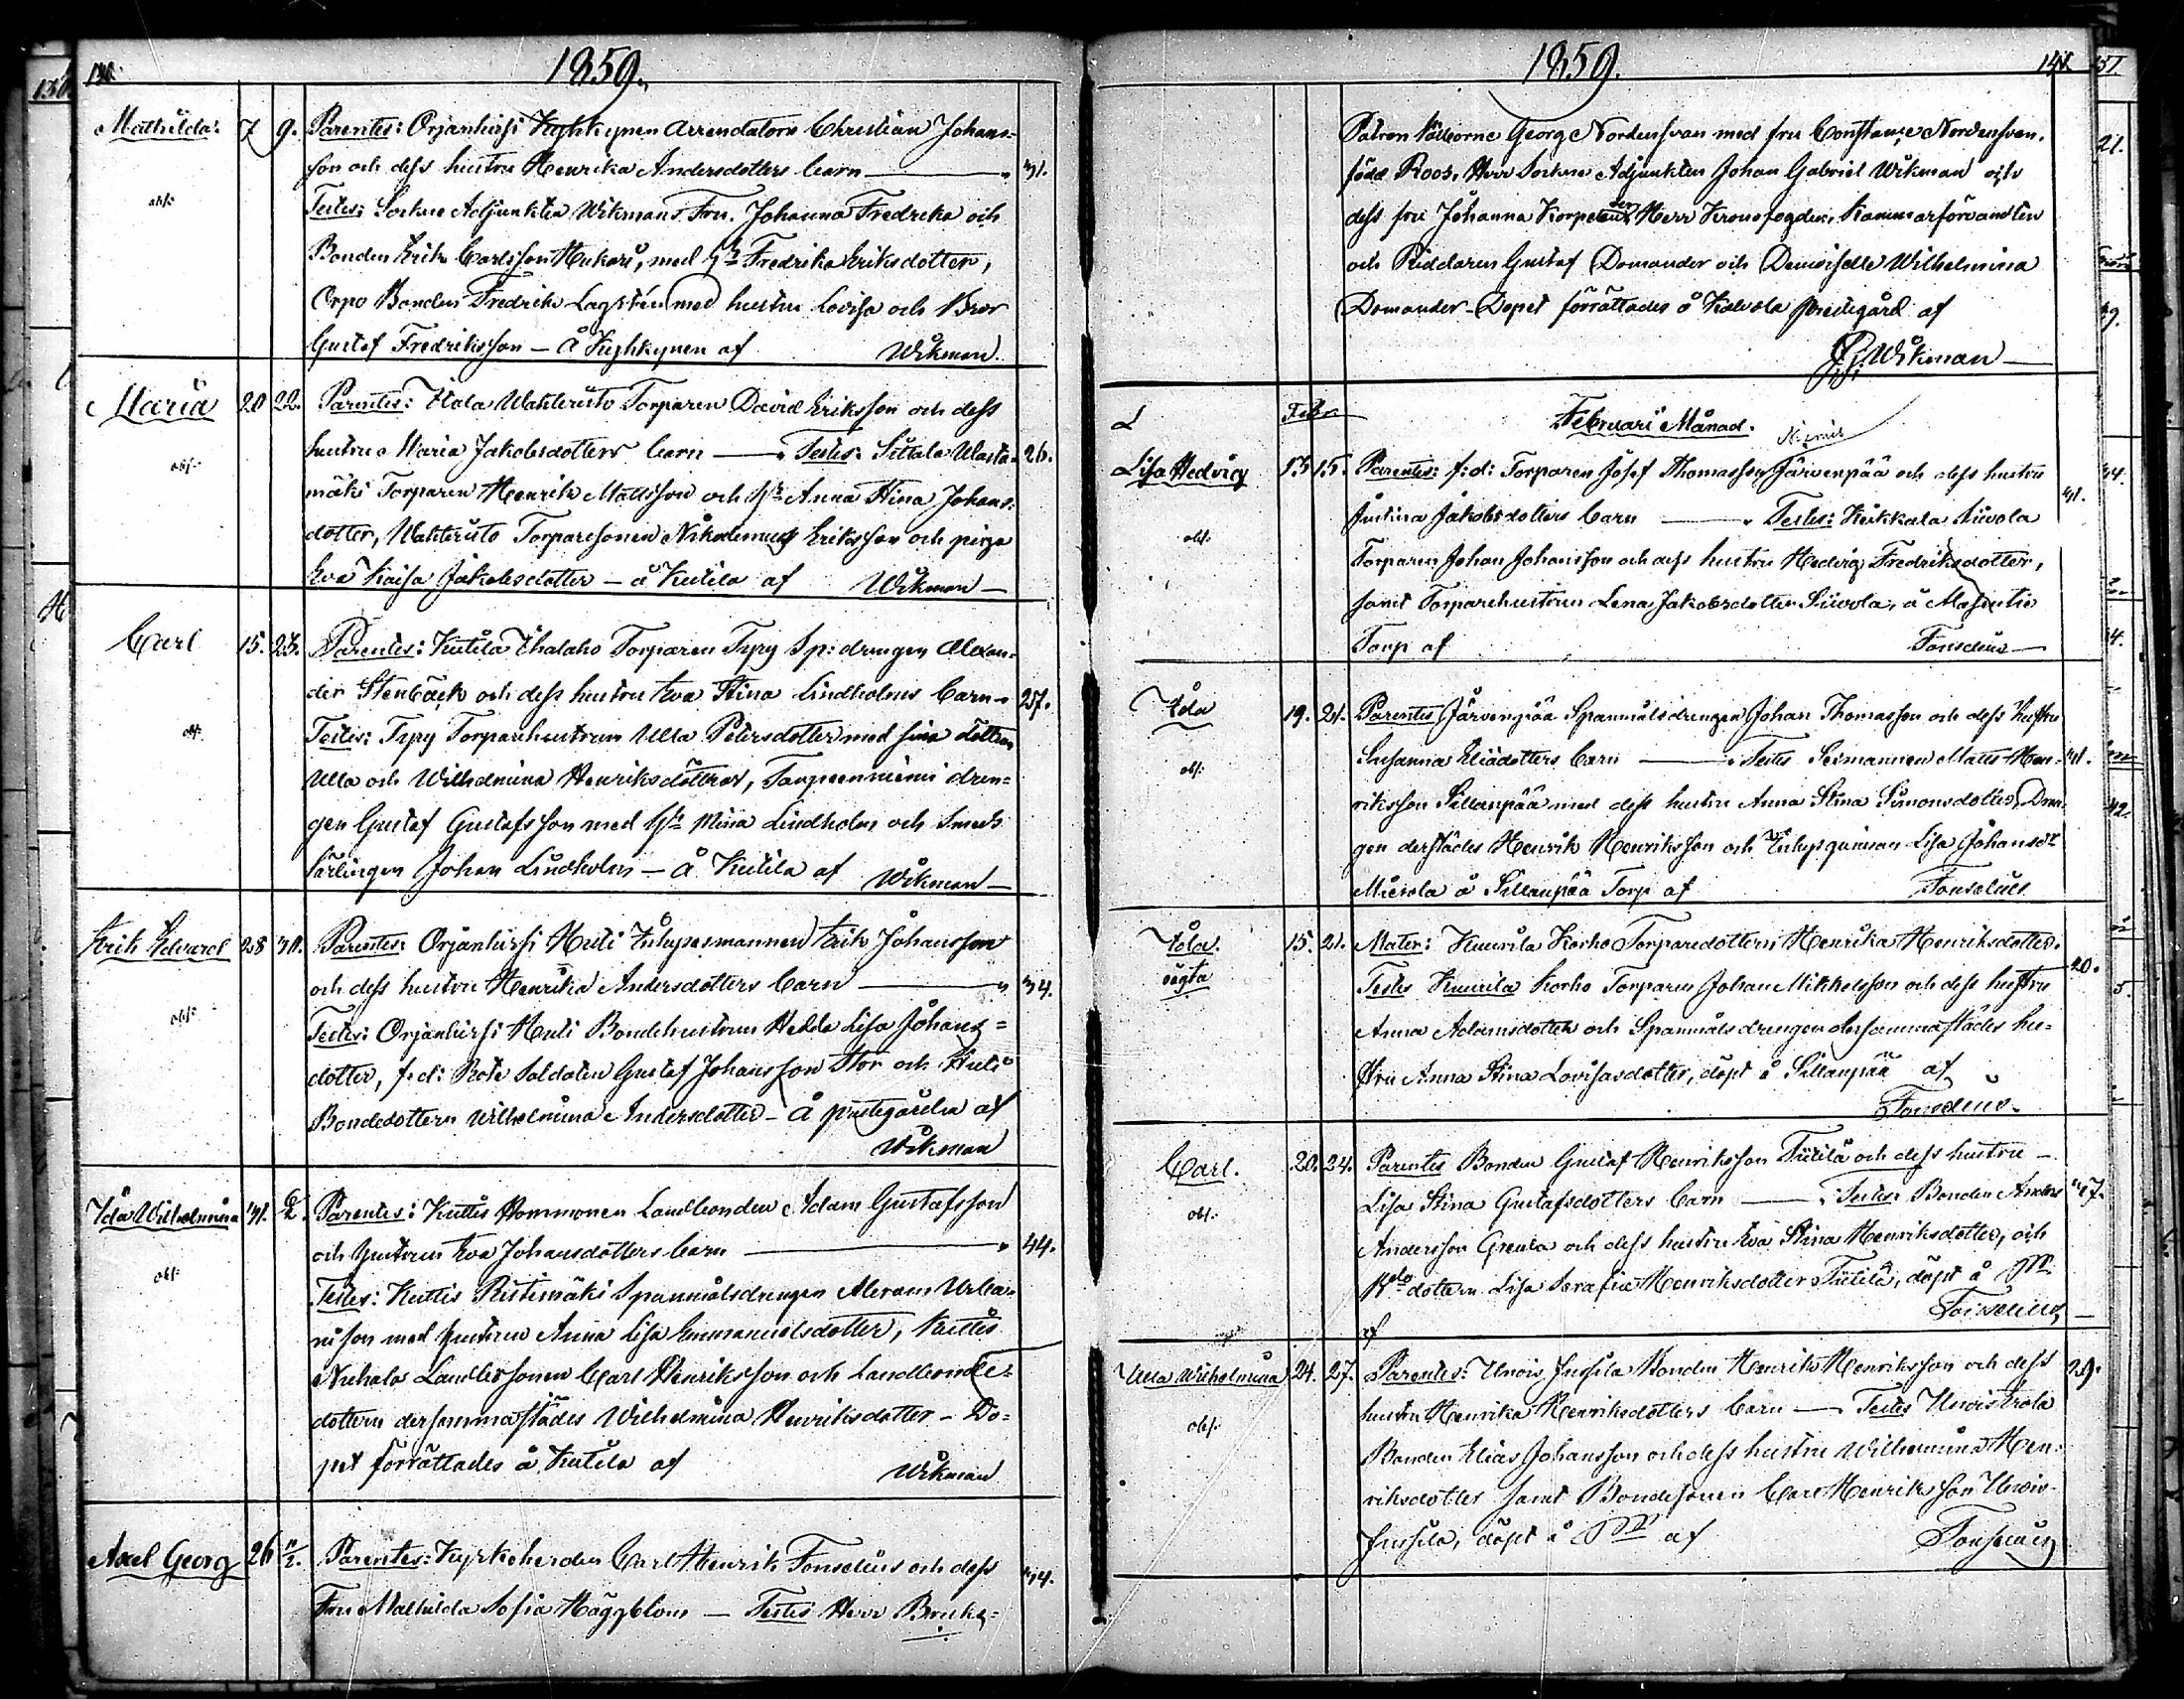 1859.
Mathilda. 7 9. Parentes: Orjanhirsi Kyhkynen Arrendatorn Christian Johans-
son och dess hustru Henrika Andersdotters barn — 31.
Testes: Sockne Adjunkten Wikmans Fru Johanna Fredrika och
Bonden Erik Carlsson Hukari, med h: Fredrika Eriksdotter,
Orpo Bonden Fredrik Lagstén med hustru Lovisa och Bror
Gustaf Fredriksson — å Kyhkynen af Wikman.
Maria 20 22. Parentes: Uskela Torparen David Eriksson och dess
hustru Maria Jakobsdotters barn — Testes: Sittala 26.
mäki Torparen Henrik Mattsson och h: Anna Stina Johans-
dotter, Torparesonen Nikodemus Eriksson och piga
Eva Kaisa Jakobsdotter — å Kutila af Wikman —
Carl 15. 23. Parentes: Kutila Torparen Typy Sp: drengen Alexan-
der Stenbäck och dess hustru Eva Stina Lindholms barn — 257.
Testes: Typy Torparehustrun Ulla Petersdotter med sina döttrar
Ulla och Wilhelmina Henriksdöttrar, dren-
gen Gustaf Gustafsson med h: Mina Lindholm och Smeds
lärlingen Johan Lindholm — å Kutila af Wikman —
Erik Edvard 28 30. Parentes: Orjanhirsi Huti Inhysesmannen Erik Johansson
och dess hustru Henrika Andersdotters barn — 34.
Testes: Orjanhirsi Huti Bondehustrun Hedda Lisa Johans-
dotter, f.d: Rote Soldaten Gustaf Johansson Stor och Huti
Bondedottern Wilhelmina Andersdotter — å prestegården af
Wikman
Ida Wilhelmina 31. 6/2. Parentes: Kuttis Hommonen Landbonden Adam Gustafsson
och hustrun Eva Johansdotters barn — 44.
Testes: Kuttis Ristimäki Spannmålsdrengen Abram Urba-
nsson med hustrun Anna Lisa Emmanuelsdotter, Kuttis
Landbosonen Carl Henriksson och Landbonde-
dottern dersammastädes Wilhelmina Henriksdotter — Do-
pet förrättades å Kutila af Wikman
Axel Georg 26 11/2. Parentes: Kyrkoherden Carl Henrik Fonselius och dess
Fru Mathilda Sofia Häggblom — Testes Herr Bruks- 34.
1859.
Patron Välborne Georg Nordensvan med fru Constance Nordensvan,
född Roos, Herr Sockne Adjunkten Johan Gabriel Wikman och
dess fru Johanna Herr Kronofogden, Kammarförvandten
och Riddaren Gustaf Domander och Demoiselle Wilhelmina
Domander — Dopet förrättades å Kalvola prestegård af
J.G. Wikman —
Febr Februari Månad.
Lisa Hedvig 13 15. Parentes: f:d: Torparen Josef Thomasson Järvenpää och dess hustru
Justina Jakobsdotters barn — Testes: Keikkala Siivola 31.
Torparen Johan Johansson och dess hustru Hedvig Fredriksdotter,
samt Torparehustrun Lena Jakobsdotter Siivola, å
Torp af Fonselius —
Ida 19. 21. Parentes Järvenpää Spannmålsdrengen Johan Thomasson och dess hustru
Susanna Eliædotters barn — Testes Sexmannen Matts Hen- 31.
riksson Sillanpää med dess hustru Anna Stina Simonsdotter, Dren-
gen derstädes Henrik Henriksson och Inhysqvinnan Lisa Johansdr
å Sillanpää Torp af Fonselius
Ida. oägta 15. 21. Mater: Kuurila Korho Torparedottern Henrika Henriksdotter.
Testes Kuurila Korho Torparen Johan Mikkelsson och dess hustru 20.
Anna Adamsdotter och Spannmålsdrengen dersammastädes hu-
stru Anna Stina Lovisasdotter, döpt å Sillanpää af
Fonselius.
Carl. 20. 24. Parentes Bonden Gustaf Henriksson Tiitilä och dess hustru —
Lisa Stina Gustafsdotters barn — Testes Bonden Anders 47.
Andersson Grenla och dess hustru Eva Stina Henriksdotter, och
dottern Lisa Serafia Henriksdotter Tiitilä, döpt å
af Fonselius —
Ulla Wilhelmina 24. 27. Parentes: Unois Jussila Bonden Henrik Henriksson och dess 29.
hustru Henrika Henriksdotters barn — Testes Unois Erola
Bonden Elias Johansson och dess hustru Wilhelmina Hen-
riksdotter samt Bondesonen Carl Henriksson Unois
Jussila, döpt å af Fonselius